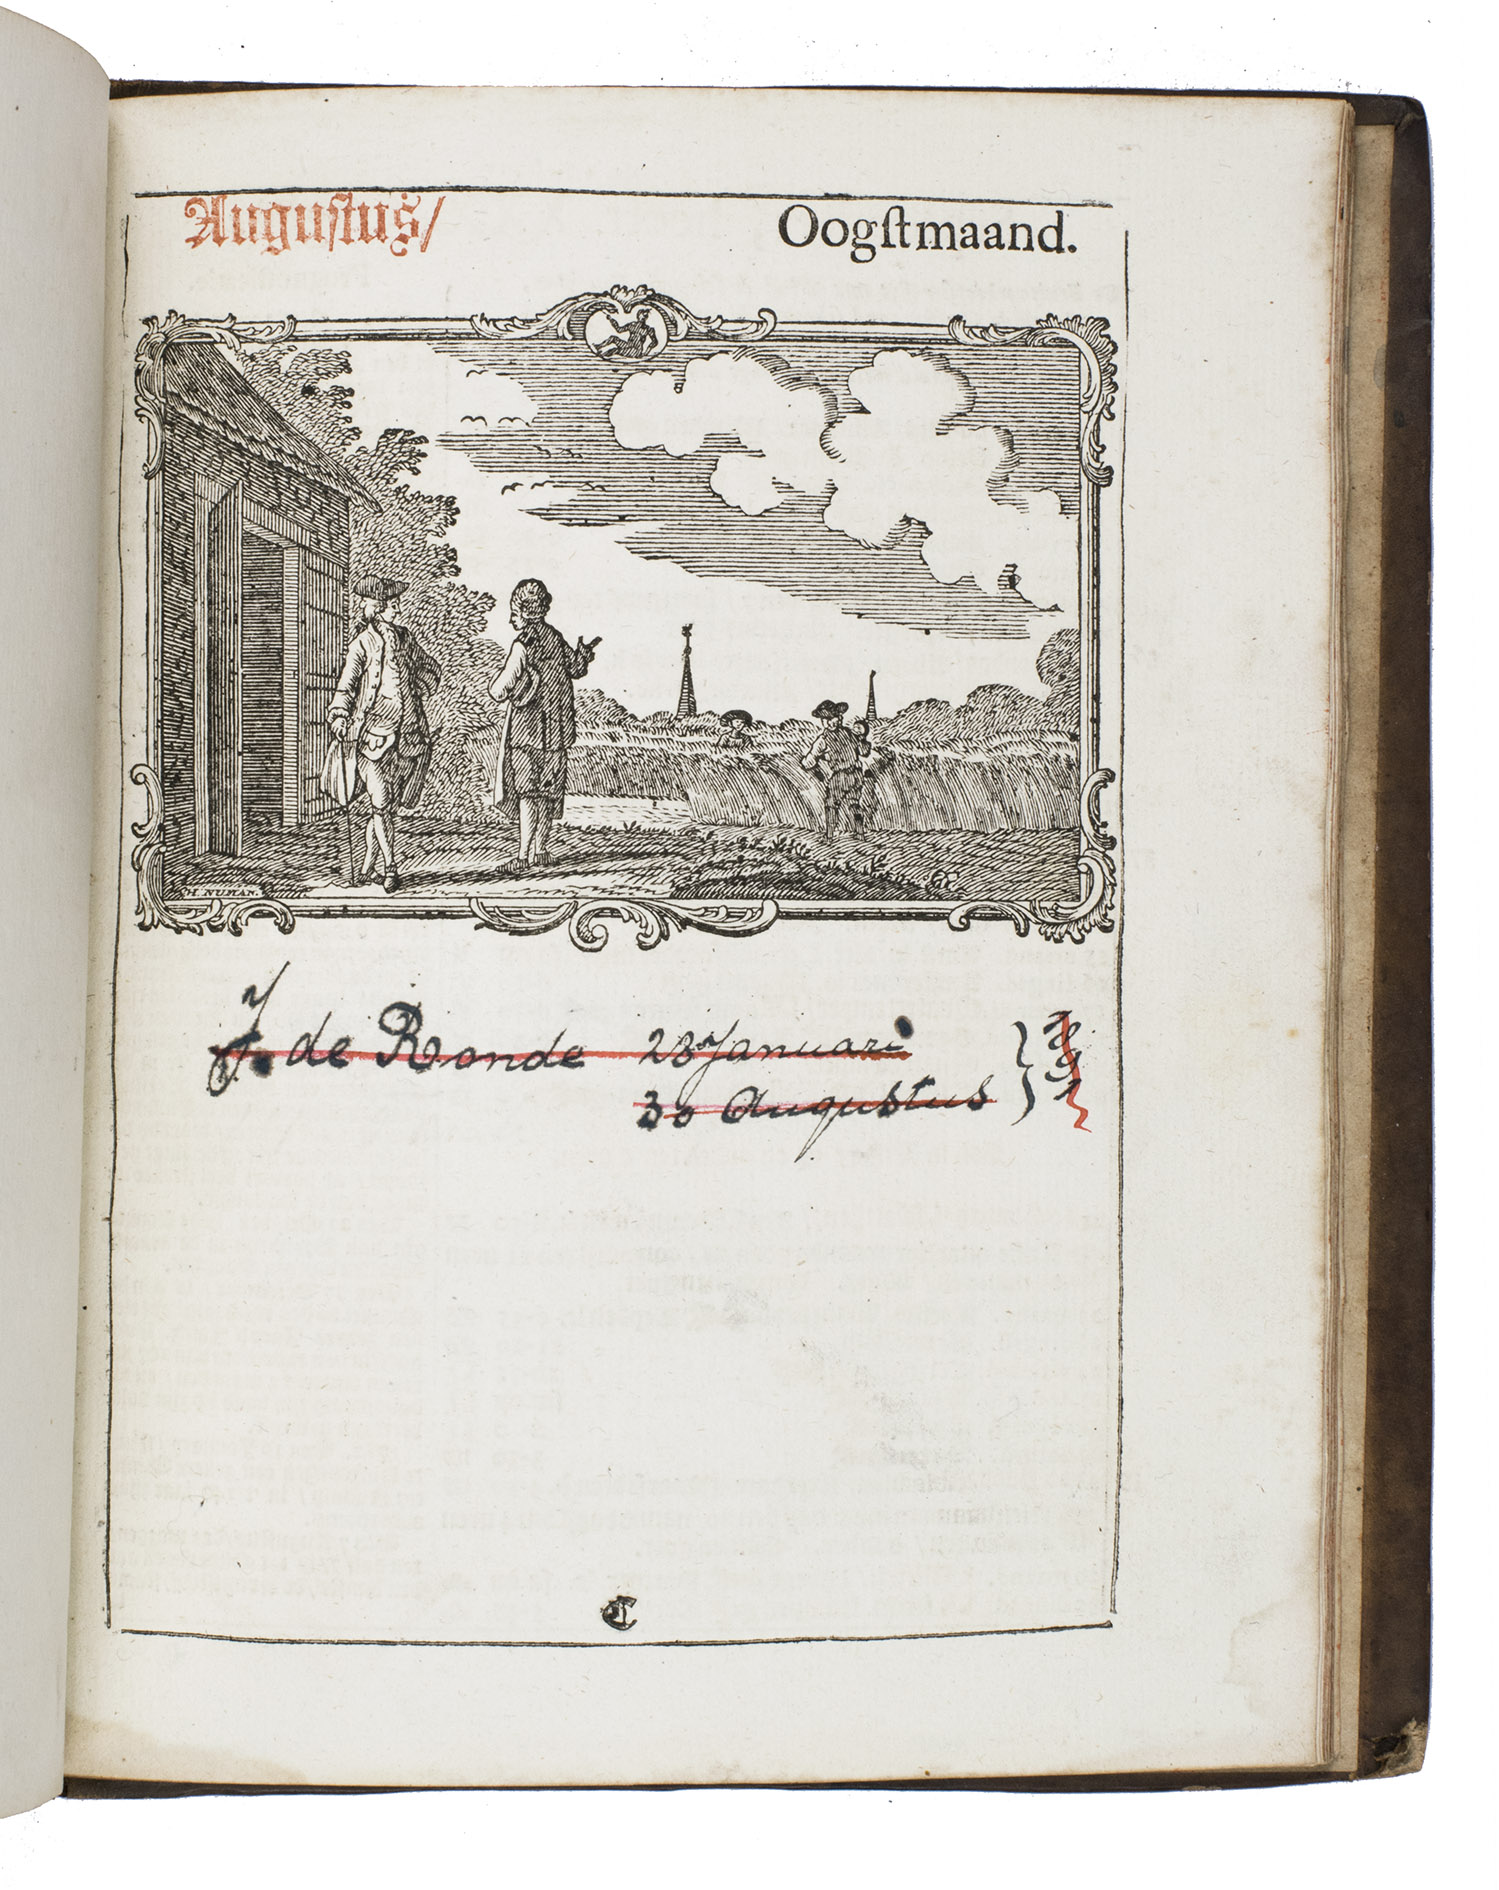 Auguſtus/ Oogſtmaand.
H. NUMAN.
J. de Ronde 28 Januari
30 Augustus
C